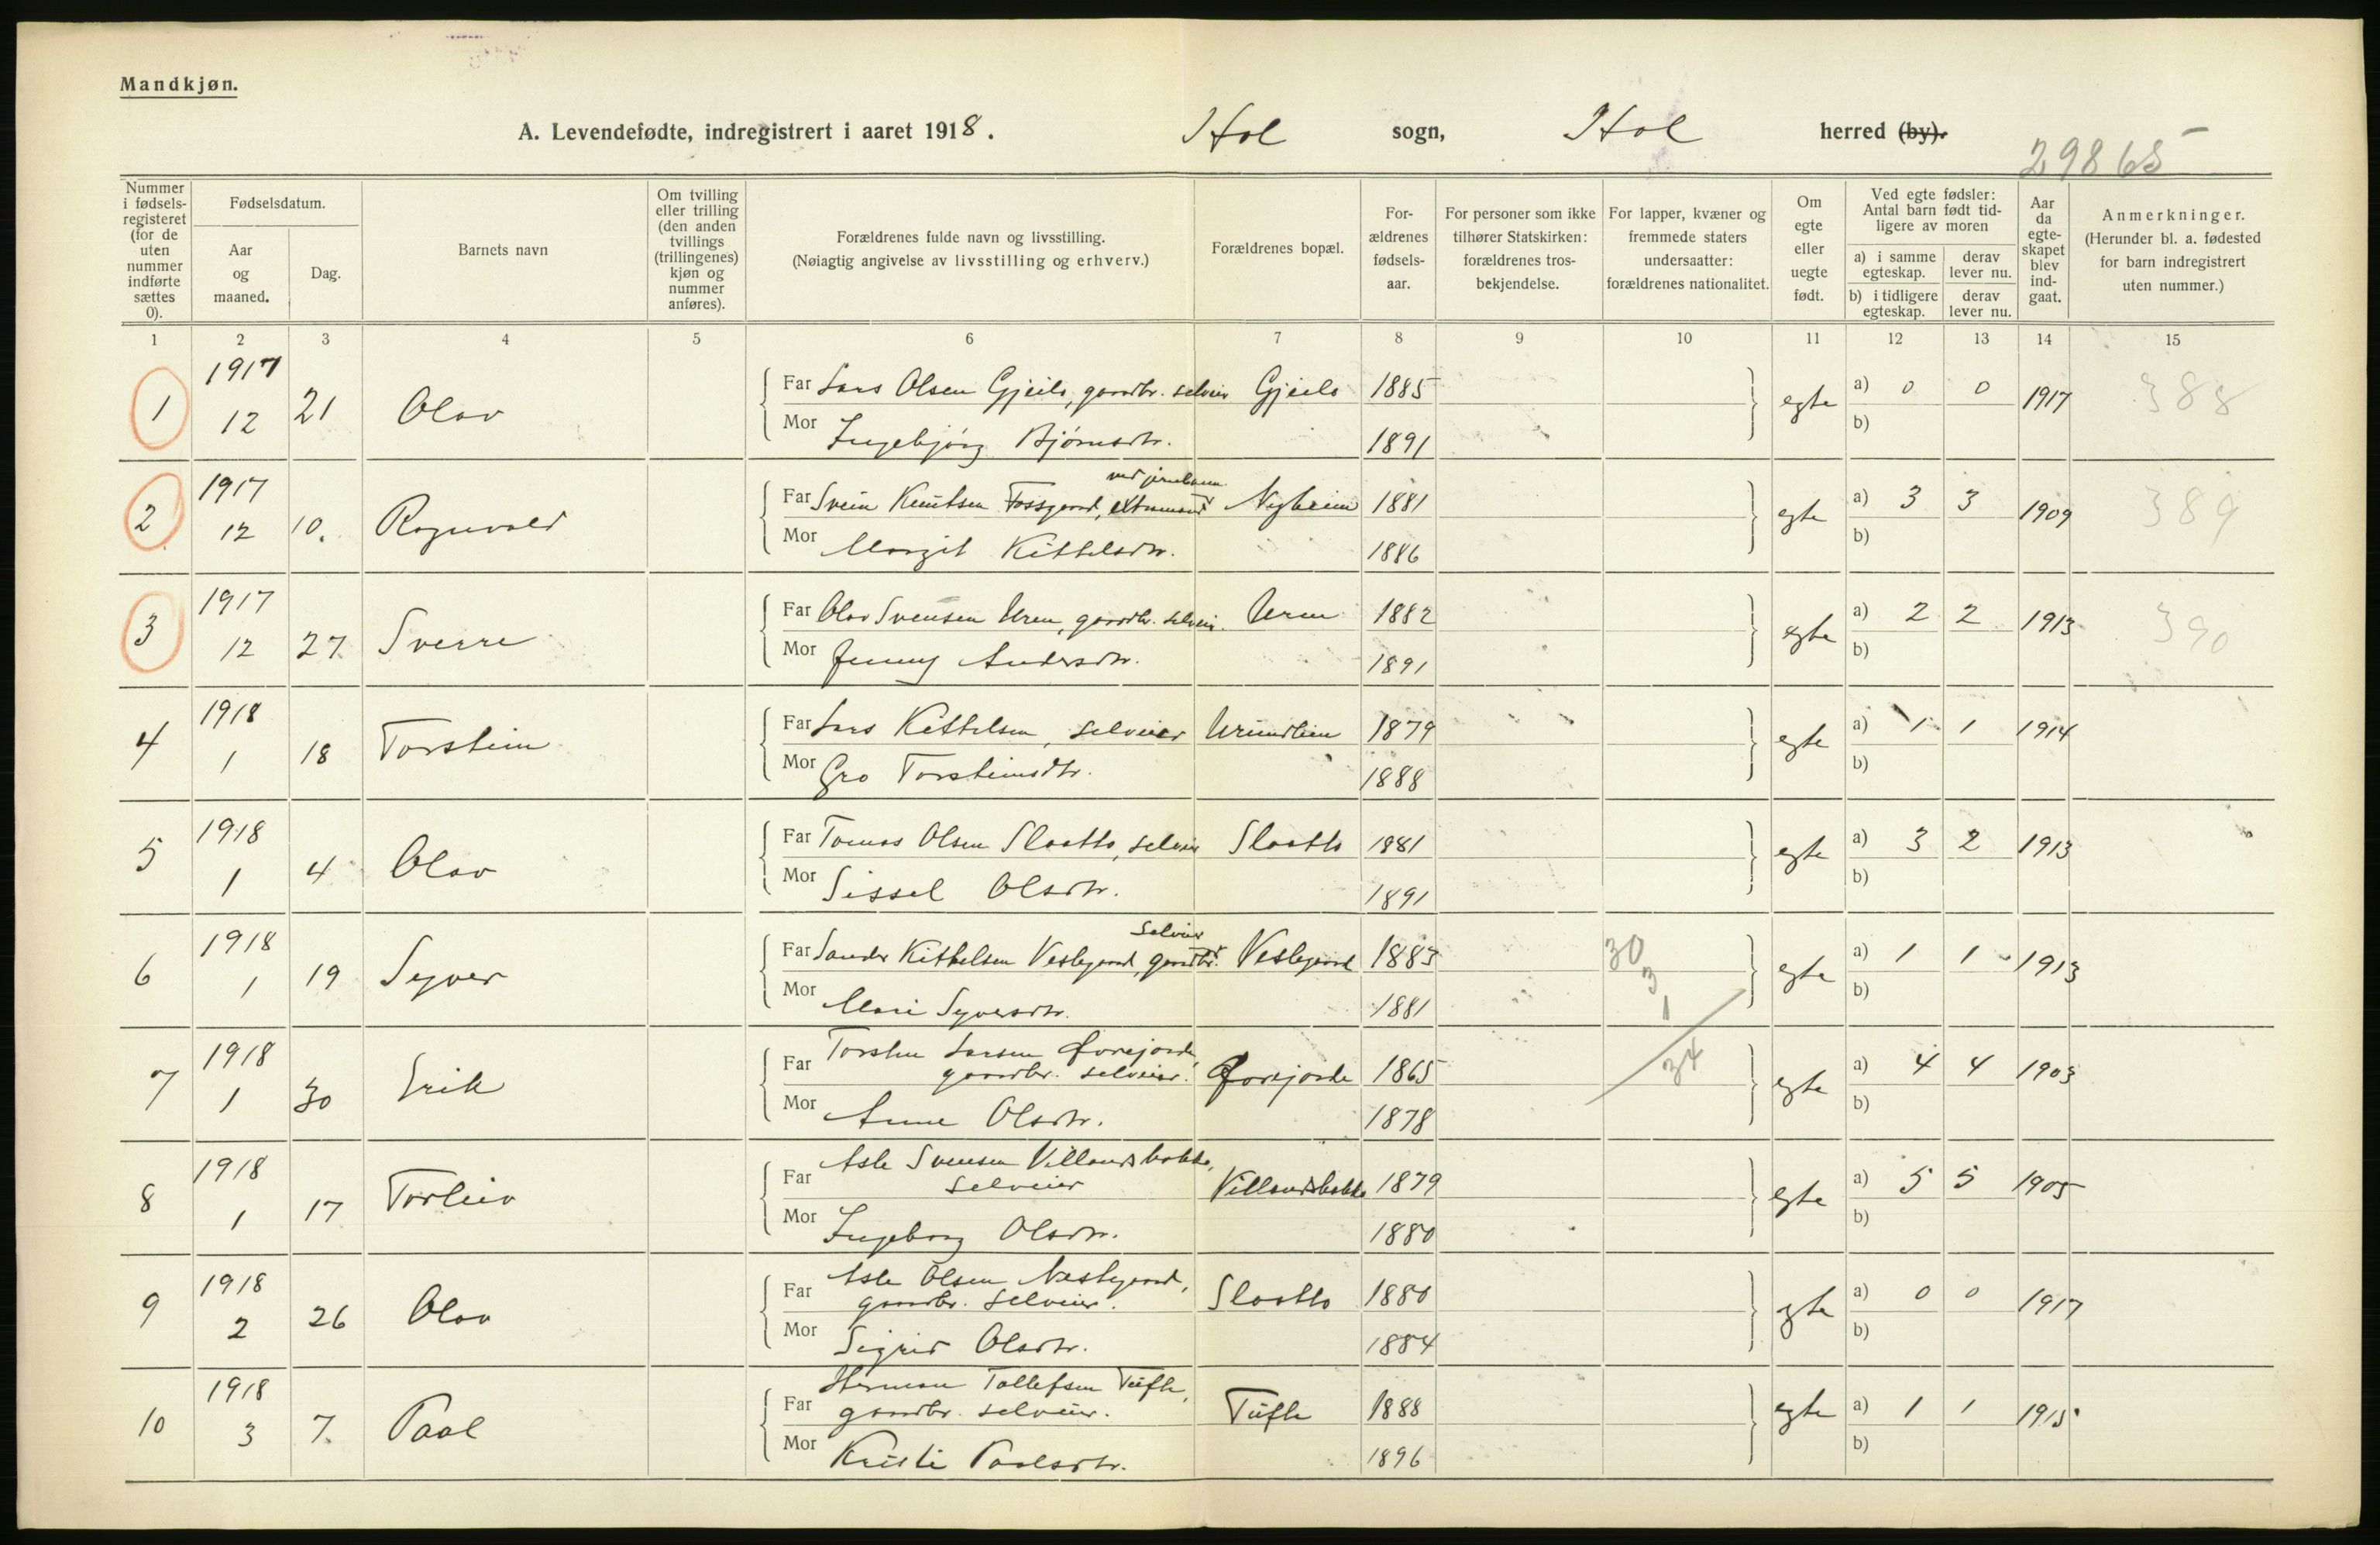 Mandkjøn.
A. Levendefødte, indregistrert i aaret 1918. Hol sogn, Hol herred (by).
29865
Nummer i fødsels-registeret (for de uten nummer indførte sættes 0).
Fødselsdatum.
Aar og maaned.
Dag.
Barnets navn
Om tvilling eller trilling (den anden tvillings (trillingenes) kjøn og nummer anføres).
Forældrenes fulde navn og livsstilling.
(Nøiagtig angivelse av livsstilling og erhverv.)
Forældrenes bopæl.
For-ældrenes fødsels-aar.
For personer som ikke tilhører Statskirken: forældrenes tros-bekjendelse.
For lapper, kvæner og fremmede staters undersaatter: forældrenes nationalitet.
Om egte eller uegte født.
Ved egte fødsler: Antal barn født tid-ligere av moren
a) i samme egteskap. derav lever nu.
b) i tidligere egteskap. derav lever nu.
Aar da egte-skapet blev ind-gaat.
Anmerkninger.
(Herunder bl. a. fødested for barn indregistrert uten nummer.)
1 2 3 4 5 6 7 8 9 10 11 12 13 14 15
1 1917 12 21 Olav Far Lars Olsen Gjeilo, gaardbr. selveier Gjeilo 1885 egte a) 0 0 1917 388
Mor Ingebjörg Bjørnsdtr. 1891 b)
2 1917 12 10. Ragnvald ved jernbanen
Far Svein Knutsen Fossgaard, Nyheim 1881 egte a) 3 3 1909 389
Mor Margit Kittelsdtr. 1886 b)
3 1917 12 27. Sverre Far Olav Svensen Uren, gaardbr. selveier. Uren 1882 egte a) 2 2 1913 390
Mor Jenny Andersdtr. 1891 b)
4 1918 1 18 Torstein Far Lars Kittelsen, selveier Urundlien 1879 egte a) 1 1 1914
Mor Gro Torsteinsdtr. 1888 b)
5 1918 1 4 Olav Far Tomas Olsen Slaatto, selveier Slaatto 1881 egte a) 3 2 1913
Mor Sissel Olsdtr. 1891 b)
6 1918 1 19 Syver selveier
Far Sander Kittelsen Veslegaard, gaardbr. Veslegaard 1883 30 3 1 egte a) 1 1 1913
Mor Mari Syversdtr. 1881 b)
7 1918 1 30 Erik Far Torsten Larsen Øvrejorde,
gaardbr. selveier. Øvrejorde 1865 34 egte a) 4 4 1903
Mor Anne Olsdtr. 1878 b)
8 1918 1 17 Torleiv Far Asle Svensen Villandsbakke,
selveier Villandsbakke 1879 egte a) 5 5 1905
Mor Ingeborg Olsdtr. 1880 b)
9 1918 2 26 Olav Far Asle Olsen Nestegaard,
gaardbr. selveier. Slaatto 1880 egte a) 0 0 1917
Mor Sigrid Olsdtr. 1884 b)
10 1918 3 7. Paal Far Herman Tollefsen Tufte,
gaardbr. selveier. Tufte 1888 egte a) 1 1 1915
Mor Kristi Paalsdtr. 1896 b)